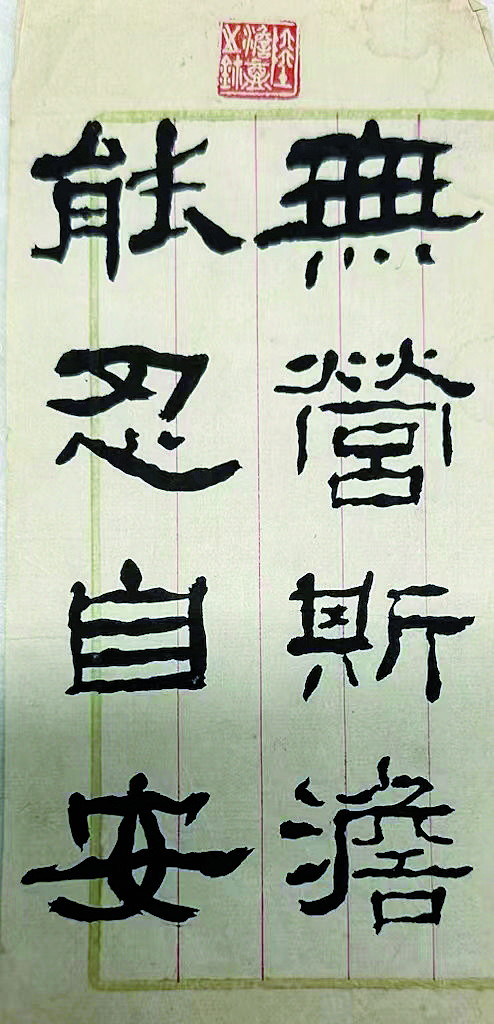 無營斯澹
能忍自安